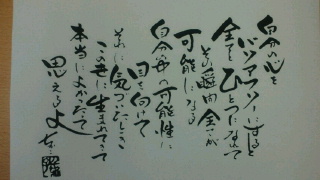 自分の心を
全てひとつになれて
その瞬間全てが
可能になる
自分の中の可能性に
目を向けて
それに気づいたとき
この世に生まれてきて
本当によかったって
思えるよ